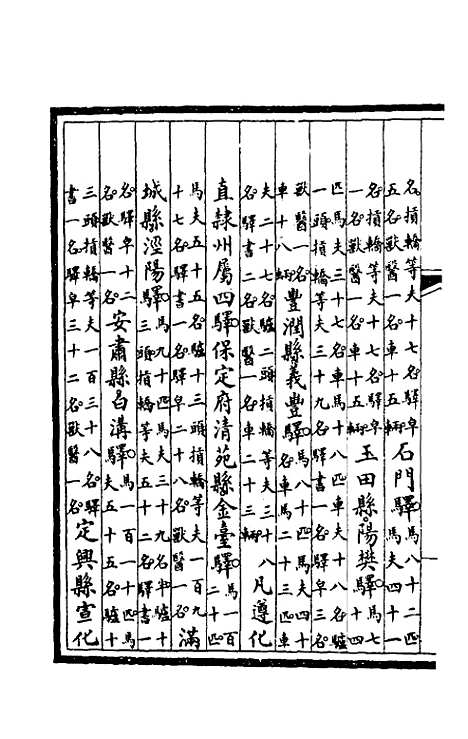 名摃轎等夫十七名驛皁五名獸醫一名車十五輛石門驛馬八十二匹馬夫四十一
名摃轎等夫十七名驛皁一名獸醫一名車十五輛玉田縣陽樊驛馬七十四
匹馬夫三十七名車馬十八匹車夫十八名驢一頭摃轎等夫三十九名驛書一名驛皁三名
獸醫一名車十八輛豐潤縣義豐驛馬八十四匹馬夫四十二名車馬二十三匹車
夫二十二名驢二頭摃轎等夫三十八名驛書二名獸醫一名車二十三輛凡遵化
直隸州屬四驛保定府清苑縣金臺驛馬一百二十匹
馬夫五十五名驢十三頭摃轎等夫一百九十七名驛書一名驛皁二十八名獸醫一名滿
城縣涇陽驛馬九十四匹馬夫三十九名驢十三頭摃轎等夫五十二名驛書一
名驛皁十二名獸醫一名安肅縣白溝驛馬一百十四匹馬夫五十五名驢十
三頭摃轎等夫一百三十八名驛書一名驛皁三十二名獸醫一名定興縣宣化